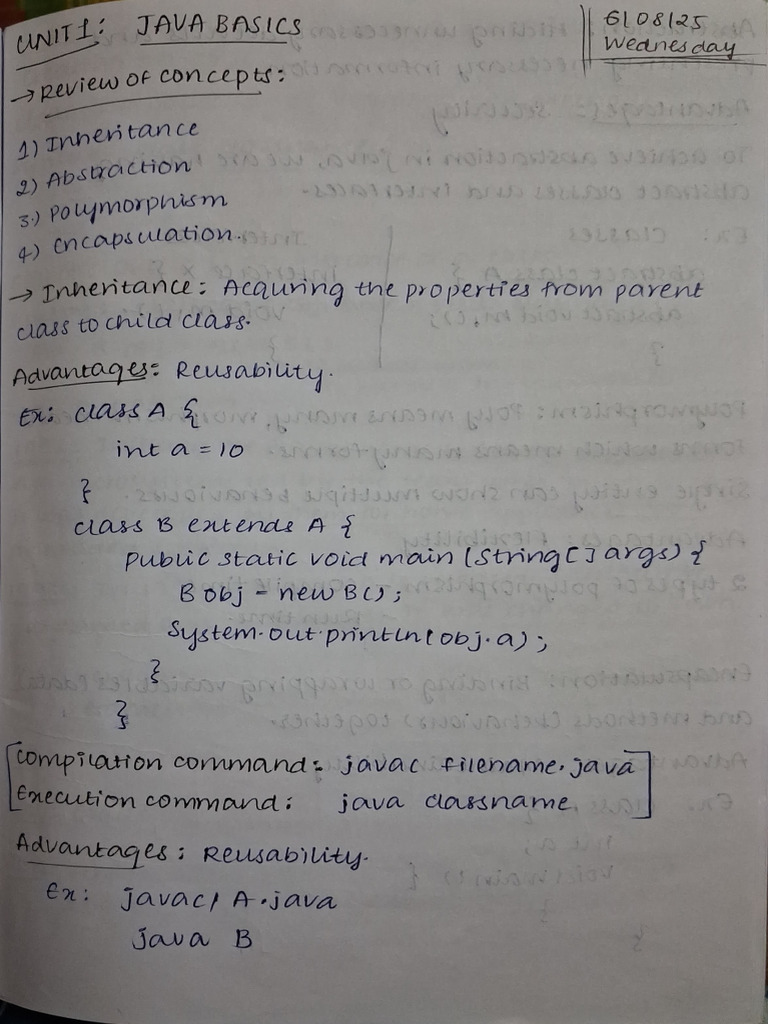 UNIT1: JAVA BASICS
6/08/25
Wednesday
→ Review of concepts:
1) Inheritance
2) Abstraction
3.) Polymorphism
4) Encapsulation.
→ Inheritance: Acquring the properties from parent
class to child class.
Advantages: Reusability.
Ex: class A {
int a = 10
}
class B extends A {
public static void main (String[] args) {
B obj = new B();
System.out.println(obj.a);
}
}
Compilation command: javac filename.java
Execution command: java classname
Advantages: Reusability.
Ex: javac A.java
java B